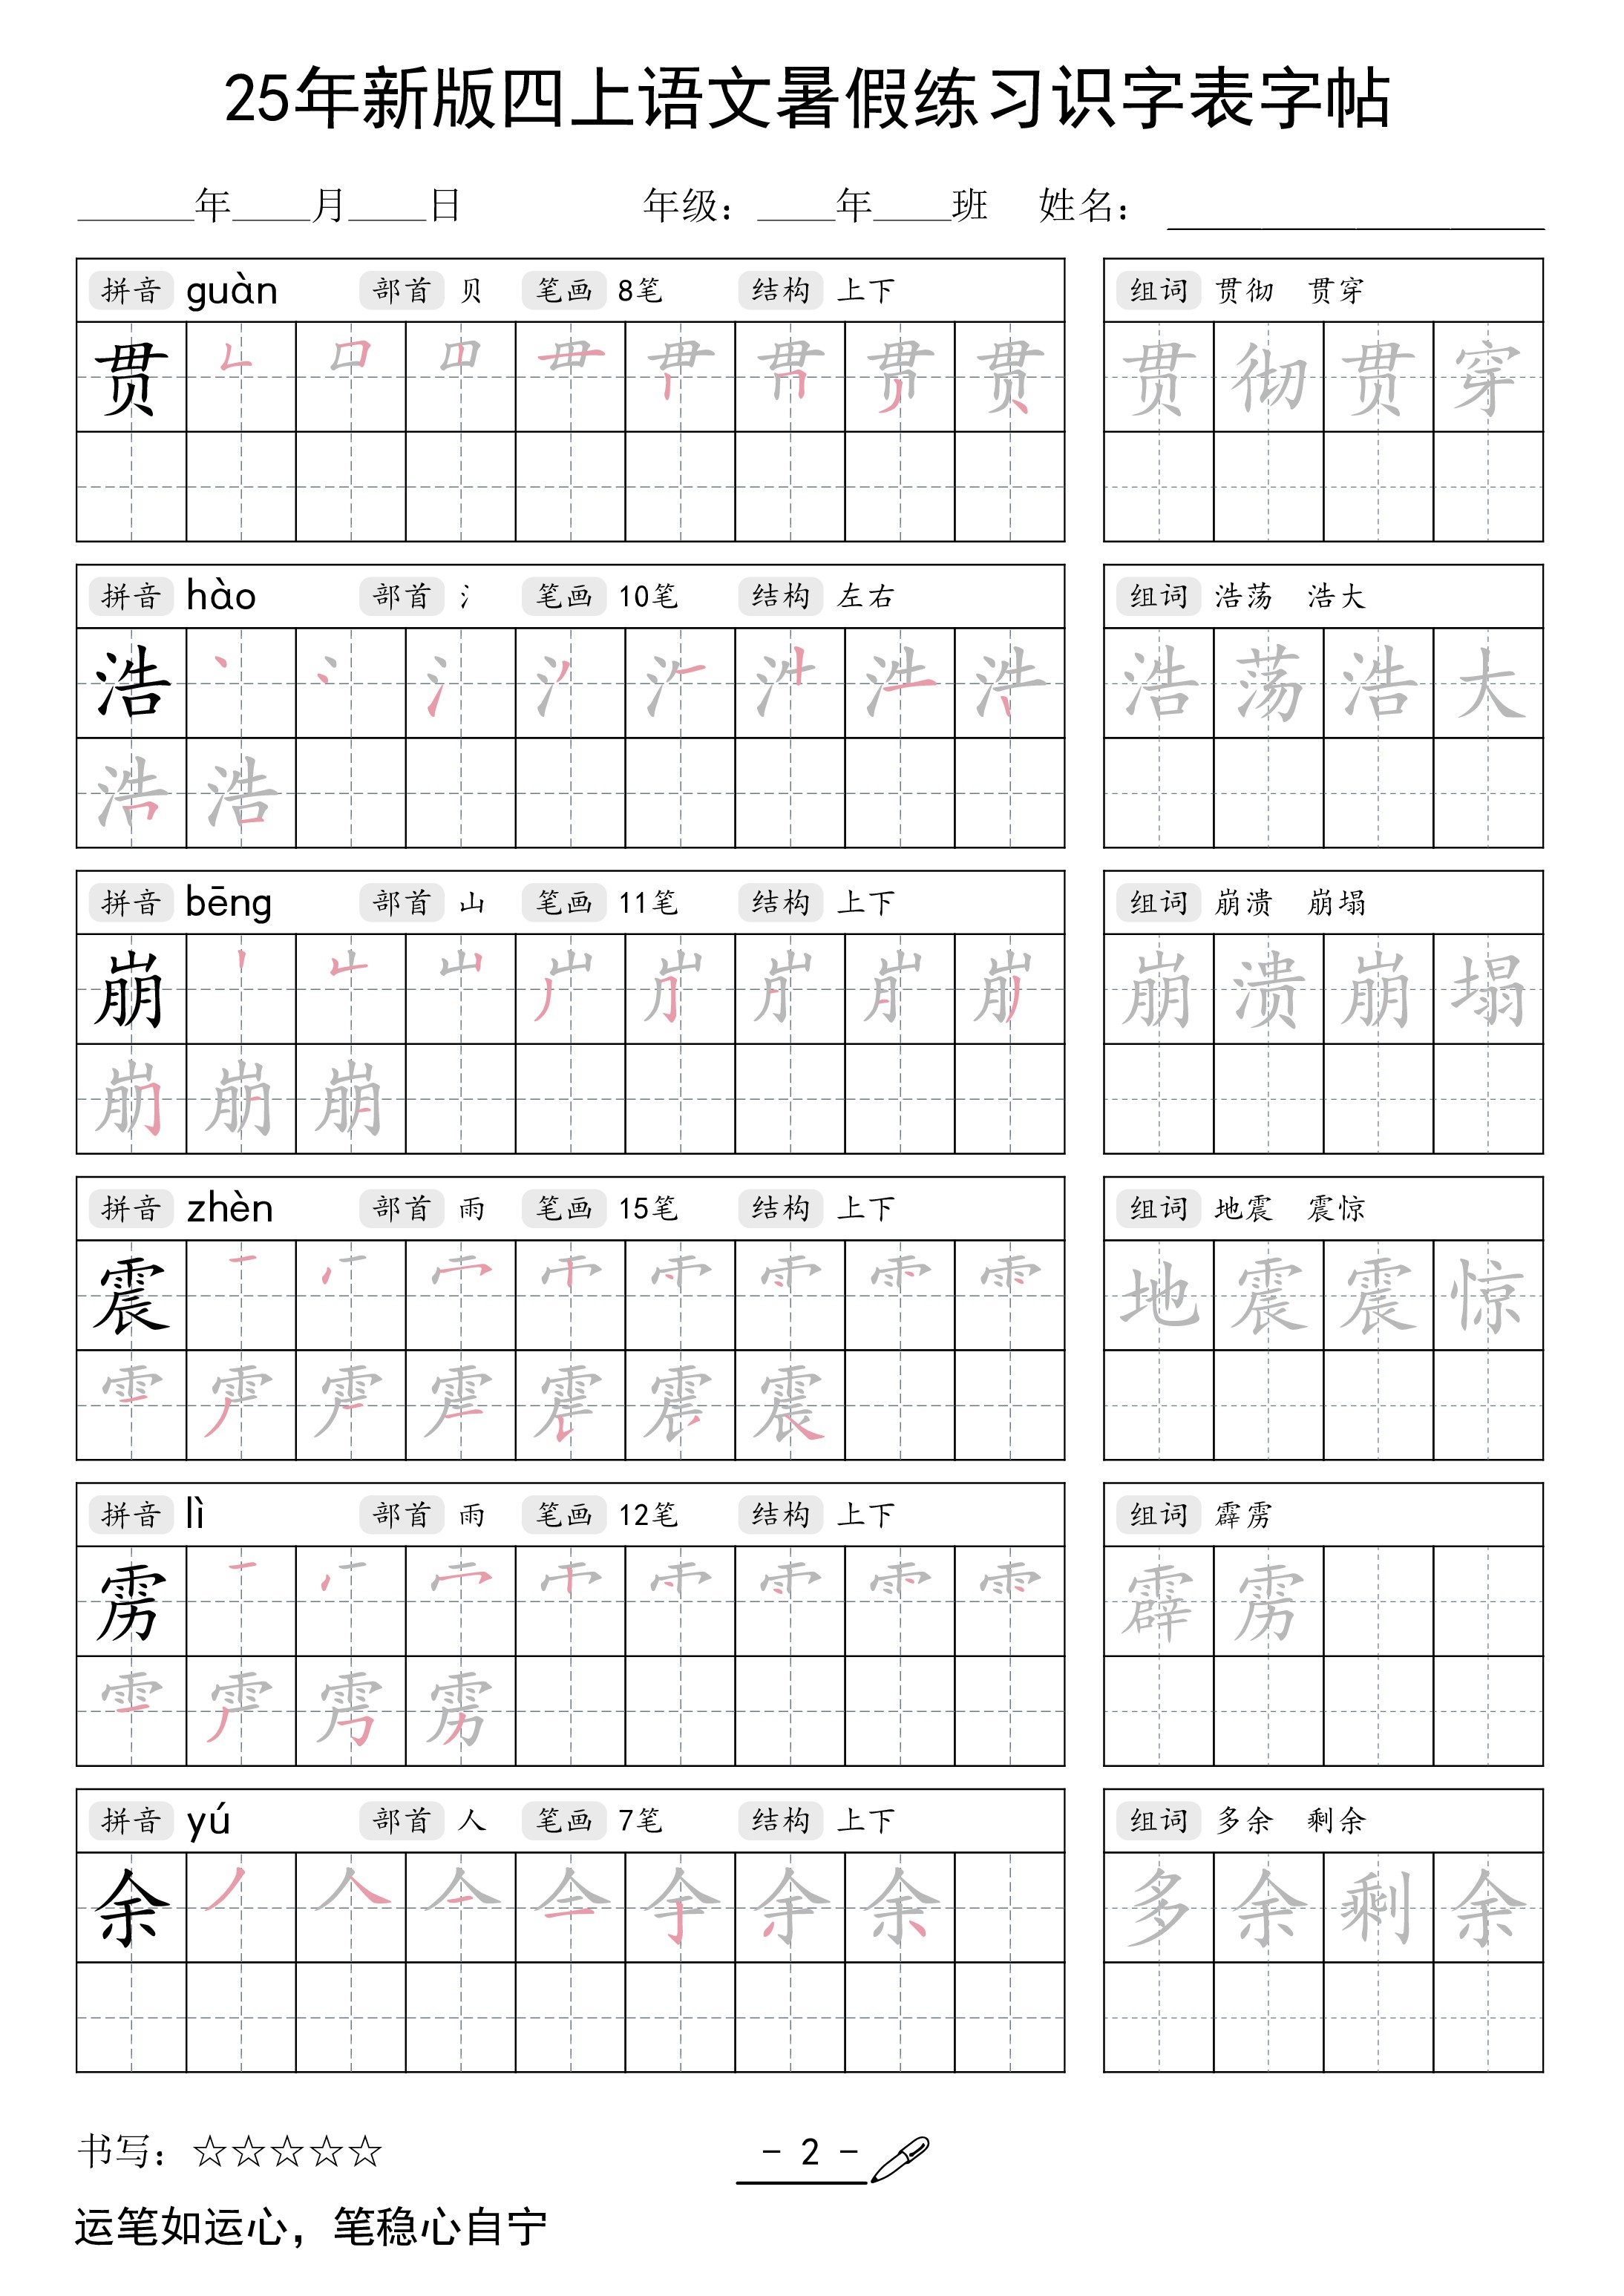 25年新版四上语文暑假练习识字表字帖
______年____月____日 年级：____年____班 姓名：
拼音 guàn 部首 贝 笔画 8笔 结构 上下 组词 贯彻 贯穿
贯 贯 彻 贯 穿
拼音 hào 部首 氵 笔画 10笔 结构 左右 组词 浩荡 浩大
浩 浩 荡 浩 大
浩 浩
拼音 bēng 部首 山 笔画 11笔 结构 上下 组词 崩溃 崩塌
崩 崩 溃 崩 塌
崩 崩 崩
拼音 zhèn 部首 雨 笔画 15笔 结构 上下 组词 地震 震惊
震 地 震 震 惊
震
拼音 lì 部首 雨 笔画 12笔 结构 上下 组词 霹雳
雳 霹 雳
雳
拼音 yú 部首 人 笔画 7笔 结构 上下 组词 多余 剩余
余 余 多 余 剩 余
书写：☆☆☆☆☆ - 2 -
运笔如运心，笔稳心自宁